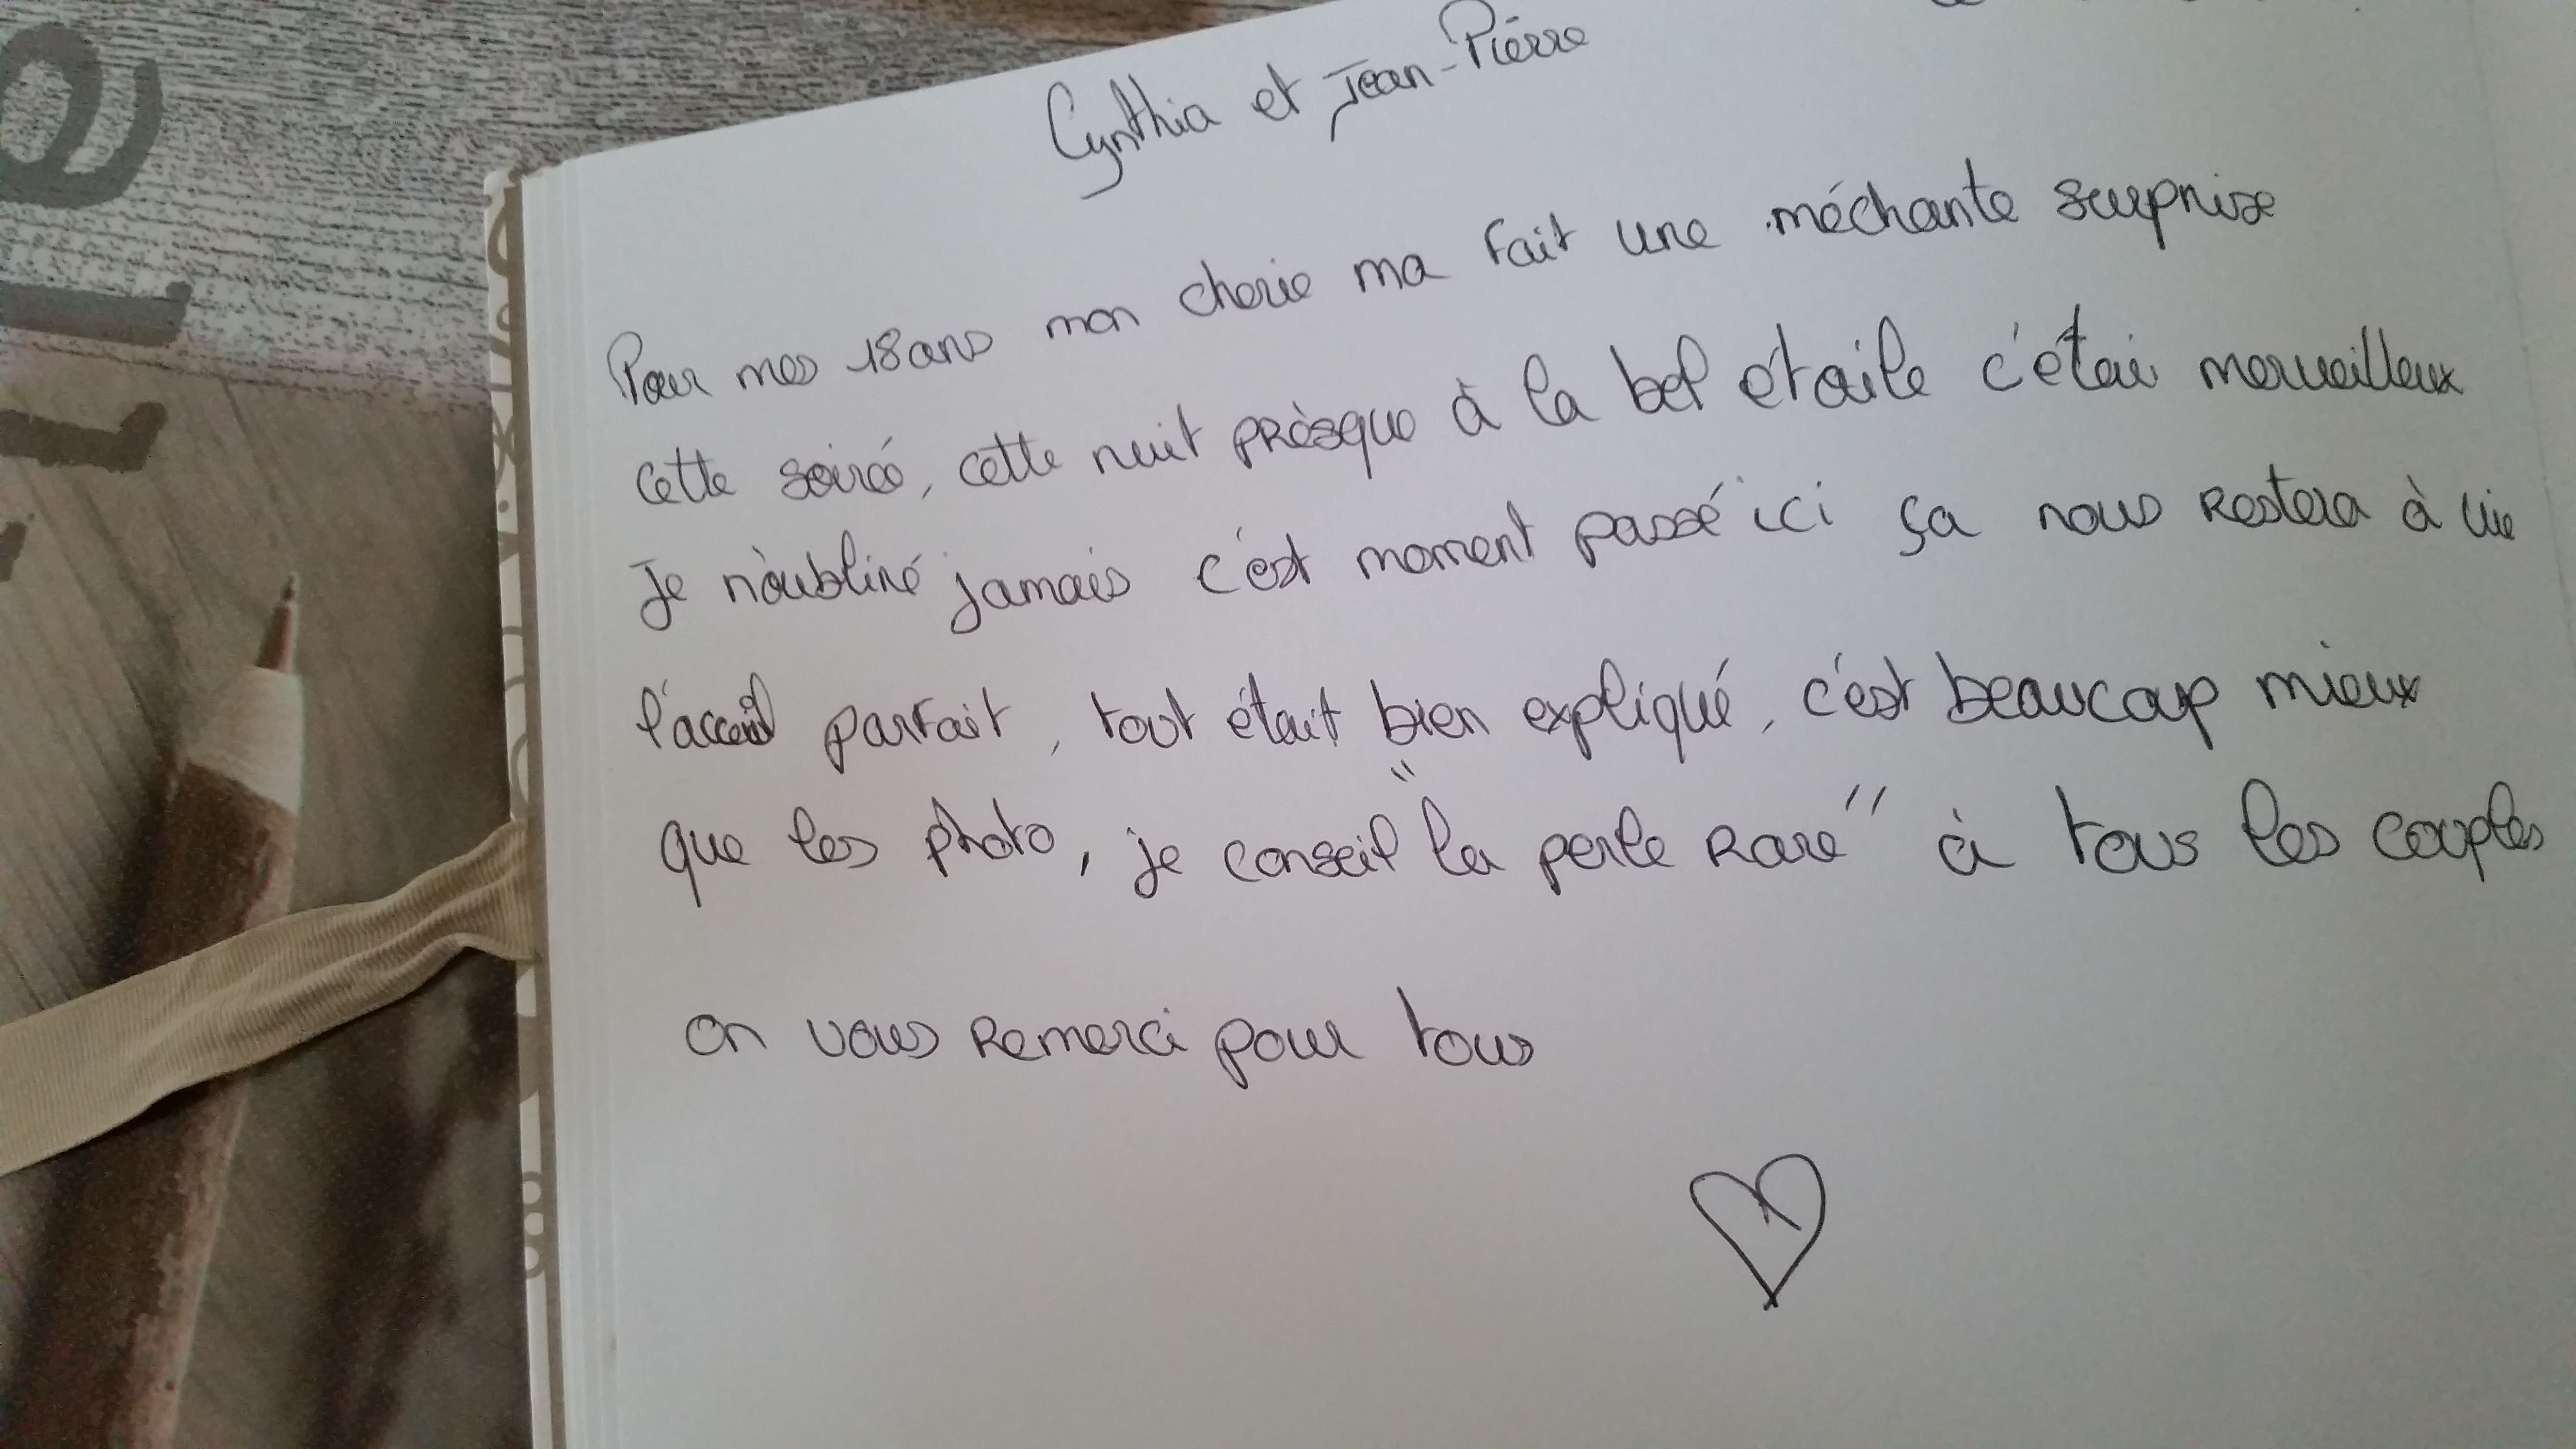 Cynthia et Jean-Piérre
Pour mes 18 ans mon cherie ma fait une méchante surprise
cette soiréé, cette nuit prèsque à la bel étoile c'étai merveilleux
Je n'oubliré jamais c'est moment passé ici ça nous restera à vie
l'acceuil parfait, tout était bien expliqué, c'est beaucoup mieux
que les photo, je conseil "la perle rare" à tous les couples
on vous remerci pour tous